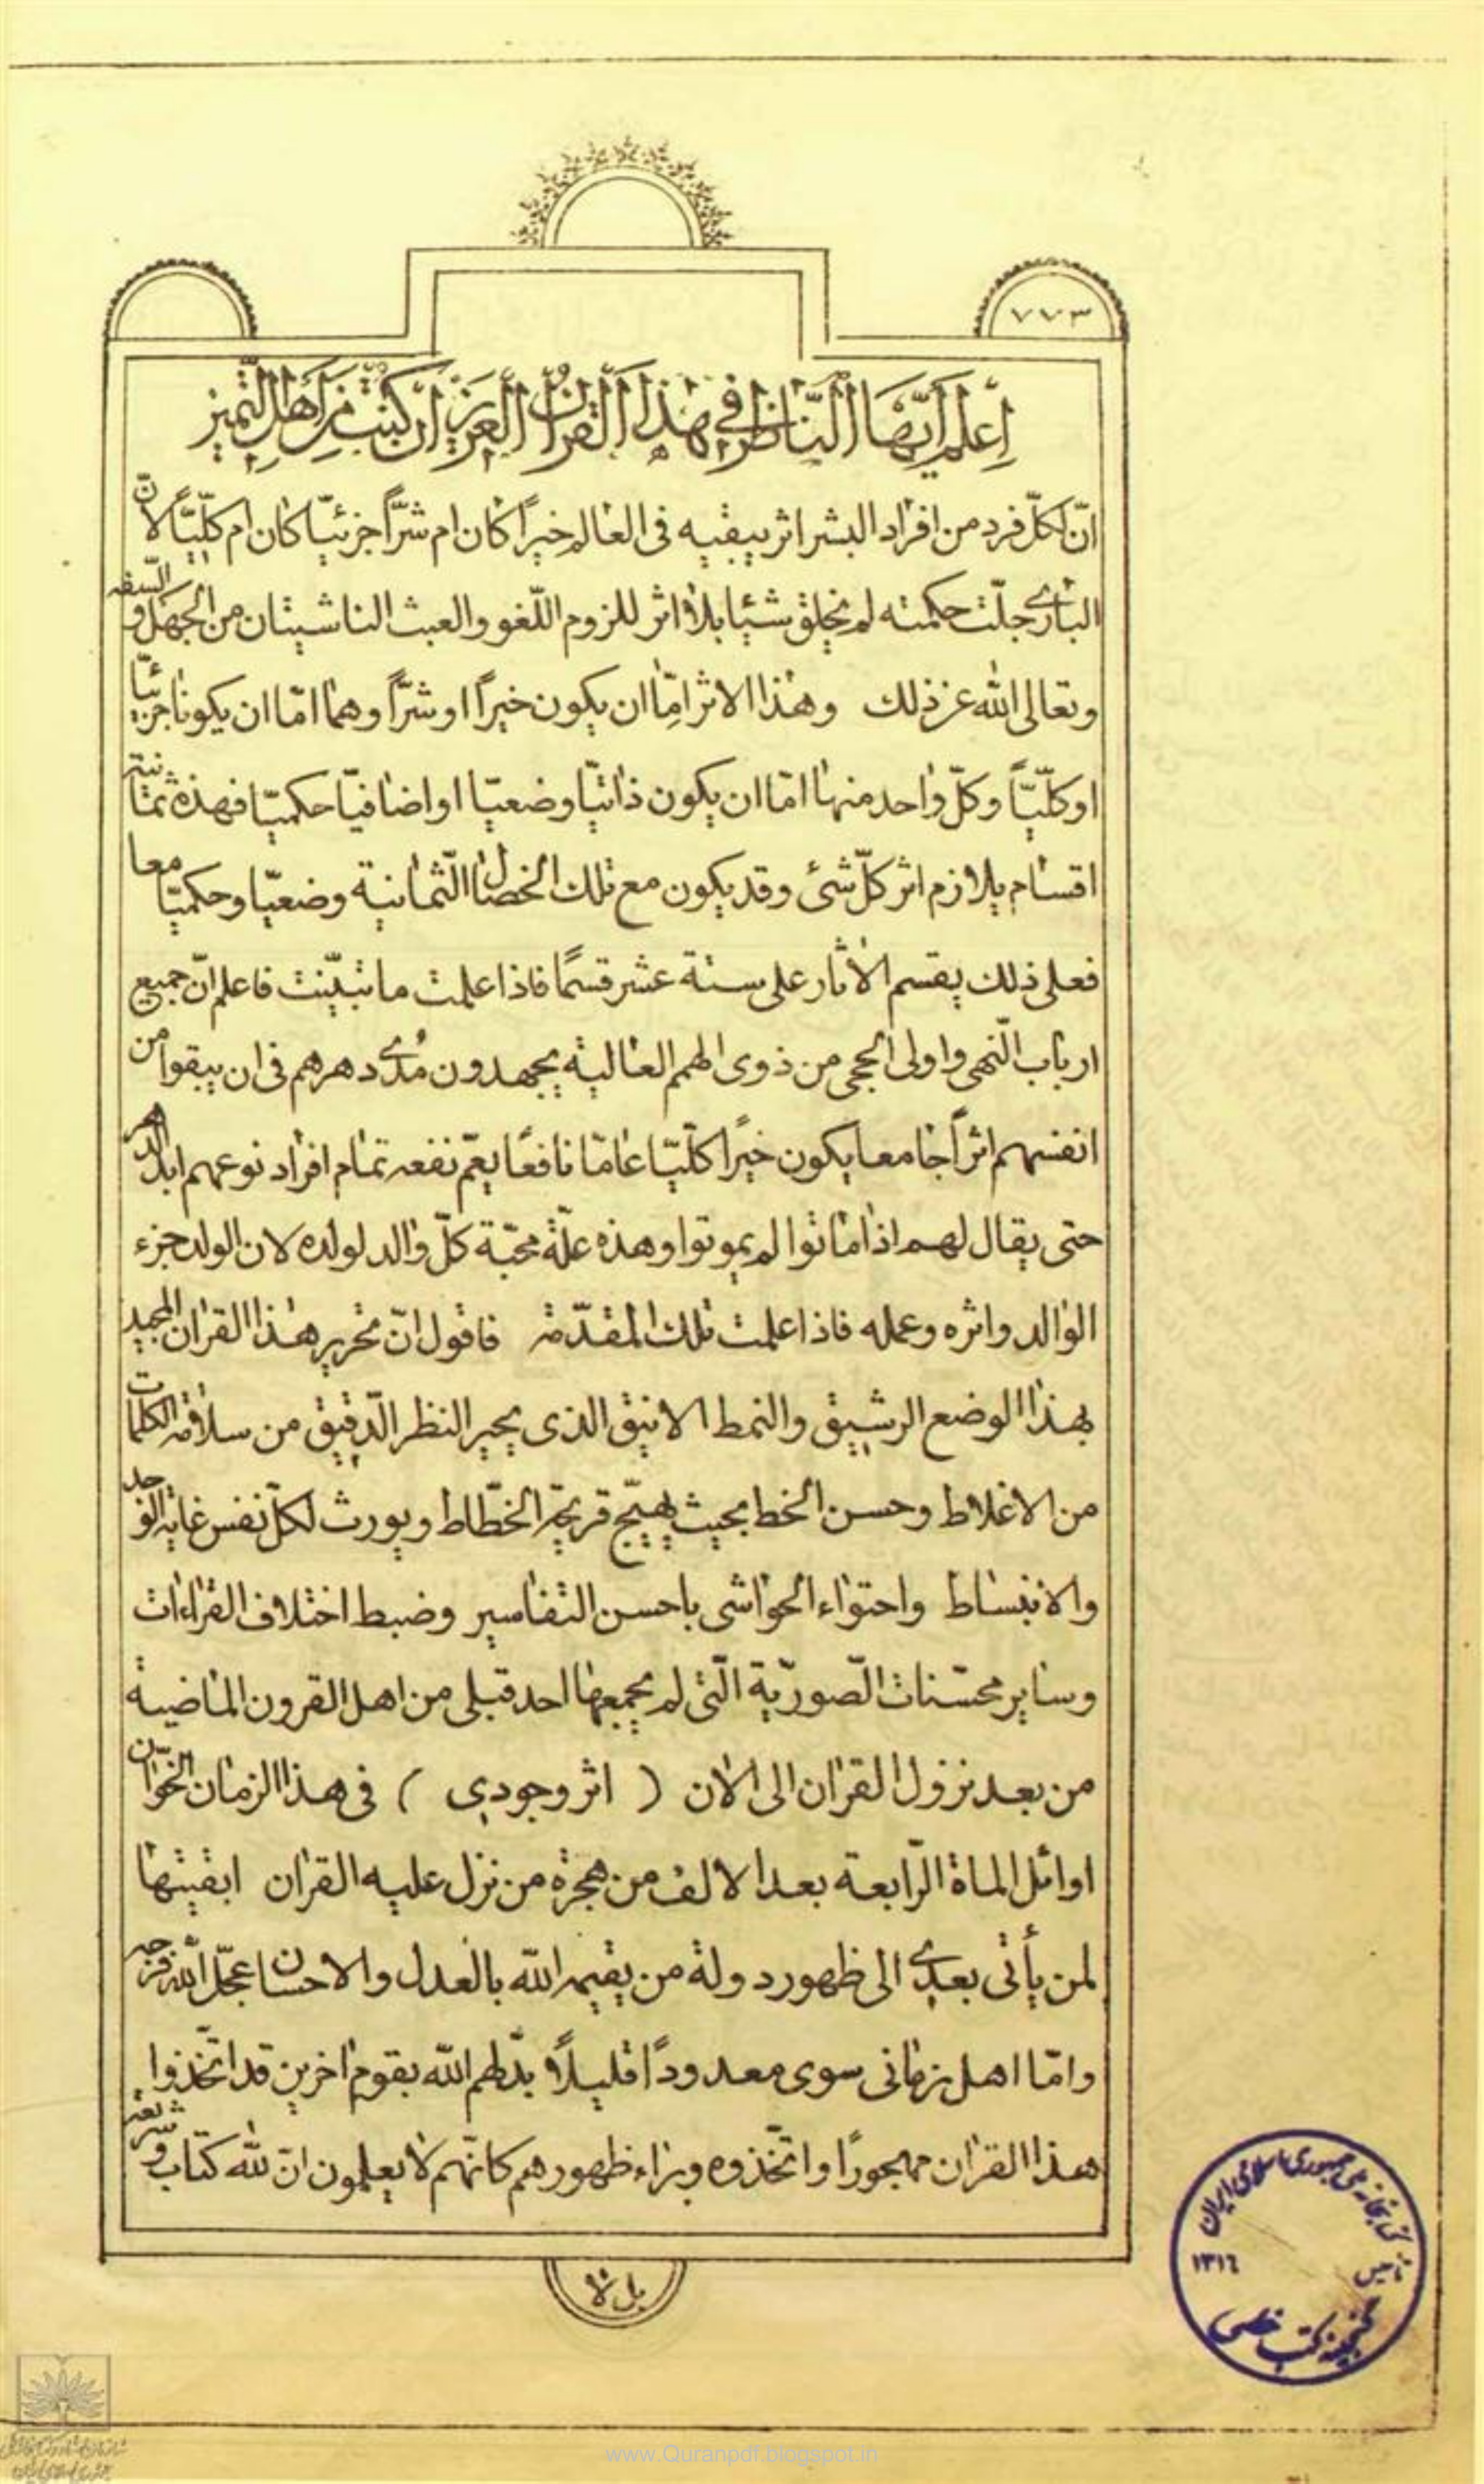 ٧٧٣
اِعلم اَيّها النّاظر في هٰذا القراٰن العزيز ان كنت من اَهل التّميز
انّ لكلّ فرد من افراد البشر اثر يبقيه فى العالم خيراً كان ام شرّاً جزئيّا كان ام كلّيّاً لانّ
البارى جلّت حكمته لم يخلق شيئا بلا اثر للزوم اللّغو والعبث الناشيتان من الجهل و السّفه
وتعالى اللّٰه عن ذلك وهذا الاثر امّا ان يكون خيراً او شرّاً وهما امّا ان يكونا جزئيّا
او كلّيّاً وكلّ واحد منها امّا ان يكون ذاتيّا وضعيّا او اضافيّا حكميّا فهذه ثمانية
اقسام يلازم اثر كلّ شئ وقد يكون مع تلك الخصال الثّمانية وضعيّا وحكميّا معا
فعلى ذلك يقسم الاثار على ستة عشر قسمًا فاذا علمت ما تبيّنت فاعلم انّ جميع
ارباب النّهى واولى الحجى من ذوى الهمم العالية يجهدون مُدى دهرهم فى ان يبقوا من
انفسهم اثرًا جامعا يكون خيرًا كلّيّا عامّا نافعًا يعمّ نفعه تمام افراد نوعهم ابد الدهر
حتى يقال لهم اذا ماتوا لم يموتوا وهذه علّة محبّة كلّ والد لولده لان الولد جزء
الوالد واثره وعمله فاذا علمت تلك المقدّمة فاقول انّ تحرير هذا القران المجيد
بهذا الوضع الرشيق والنمط الانيق الذى يحير النظر الدّقيق من سلامة الكلمات
من الاغلاط وحسن الخط بحيث يهيّج قريحة الخطّاط ويورث لكلّ نفس غاية الوجد
والانبساط واحتواء الحواشى باحسن التفاسير وضبط اختلاف القراءات
وساير محسّنات الصّوريّة الّتى لم يجمعها احد قبلى من اهل القرون الماضية
من بعد نزول القران الى الان ( اثر وجودي ) فى هذا الزمان الخوّان
اوائل الماة الرّابعة بعد الالف من هجرة من نزل عليه القران ابقيتها
لمن يأتى بعدى الى ظهور دولة من يقيمه اللّٰه بالعدل والاحسان عجّل اللّٰه فرجه
وامّا اهل زمانى سوى معدودًا قليلاً بدّلهم اللّٰه بقوم اخرين قد اتّخذوا
هذا القران مهجورًا واتّخذوه وراء ظهورهم كانّهم لا يعلمون انّ للّٰه كتاب و شريعة
بل لا
كتابخانه ملى جمهورى اسلامى ايران
تأسيس
١٣١٦
گنجينه كتب خطى
www.Quranpdf.blogspot.in